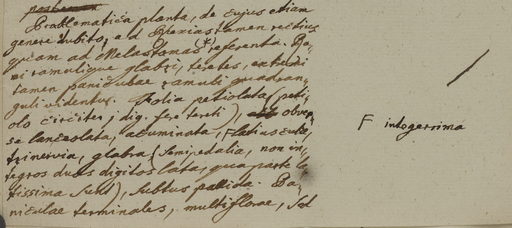 Problematica planta, de cujus etiam
genere dubito, ad Rhexias tamen rectius
quam ad Melastomas referenda. Ra-
mi ramulique glabri, teretes, extimi
tamen paniculae ramuli quadran-
guli videntur. Folia petiolata (peti-
olo circiter j dig. fere tereti), obver-
se lanceolata, acuminata,
trinervia, glabra (semipedalia, non in-
tegros duos digitos lata, qua parte la-
tissima sunt), subtus pallida. Pa-
niculae terminales, multiflorae, sed
F integerrima